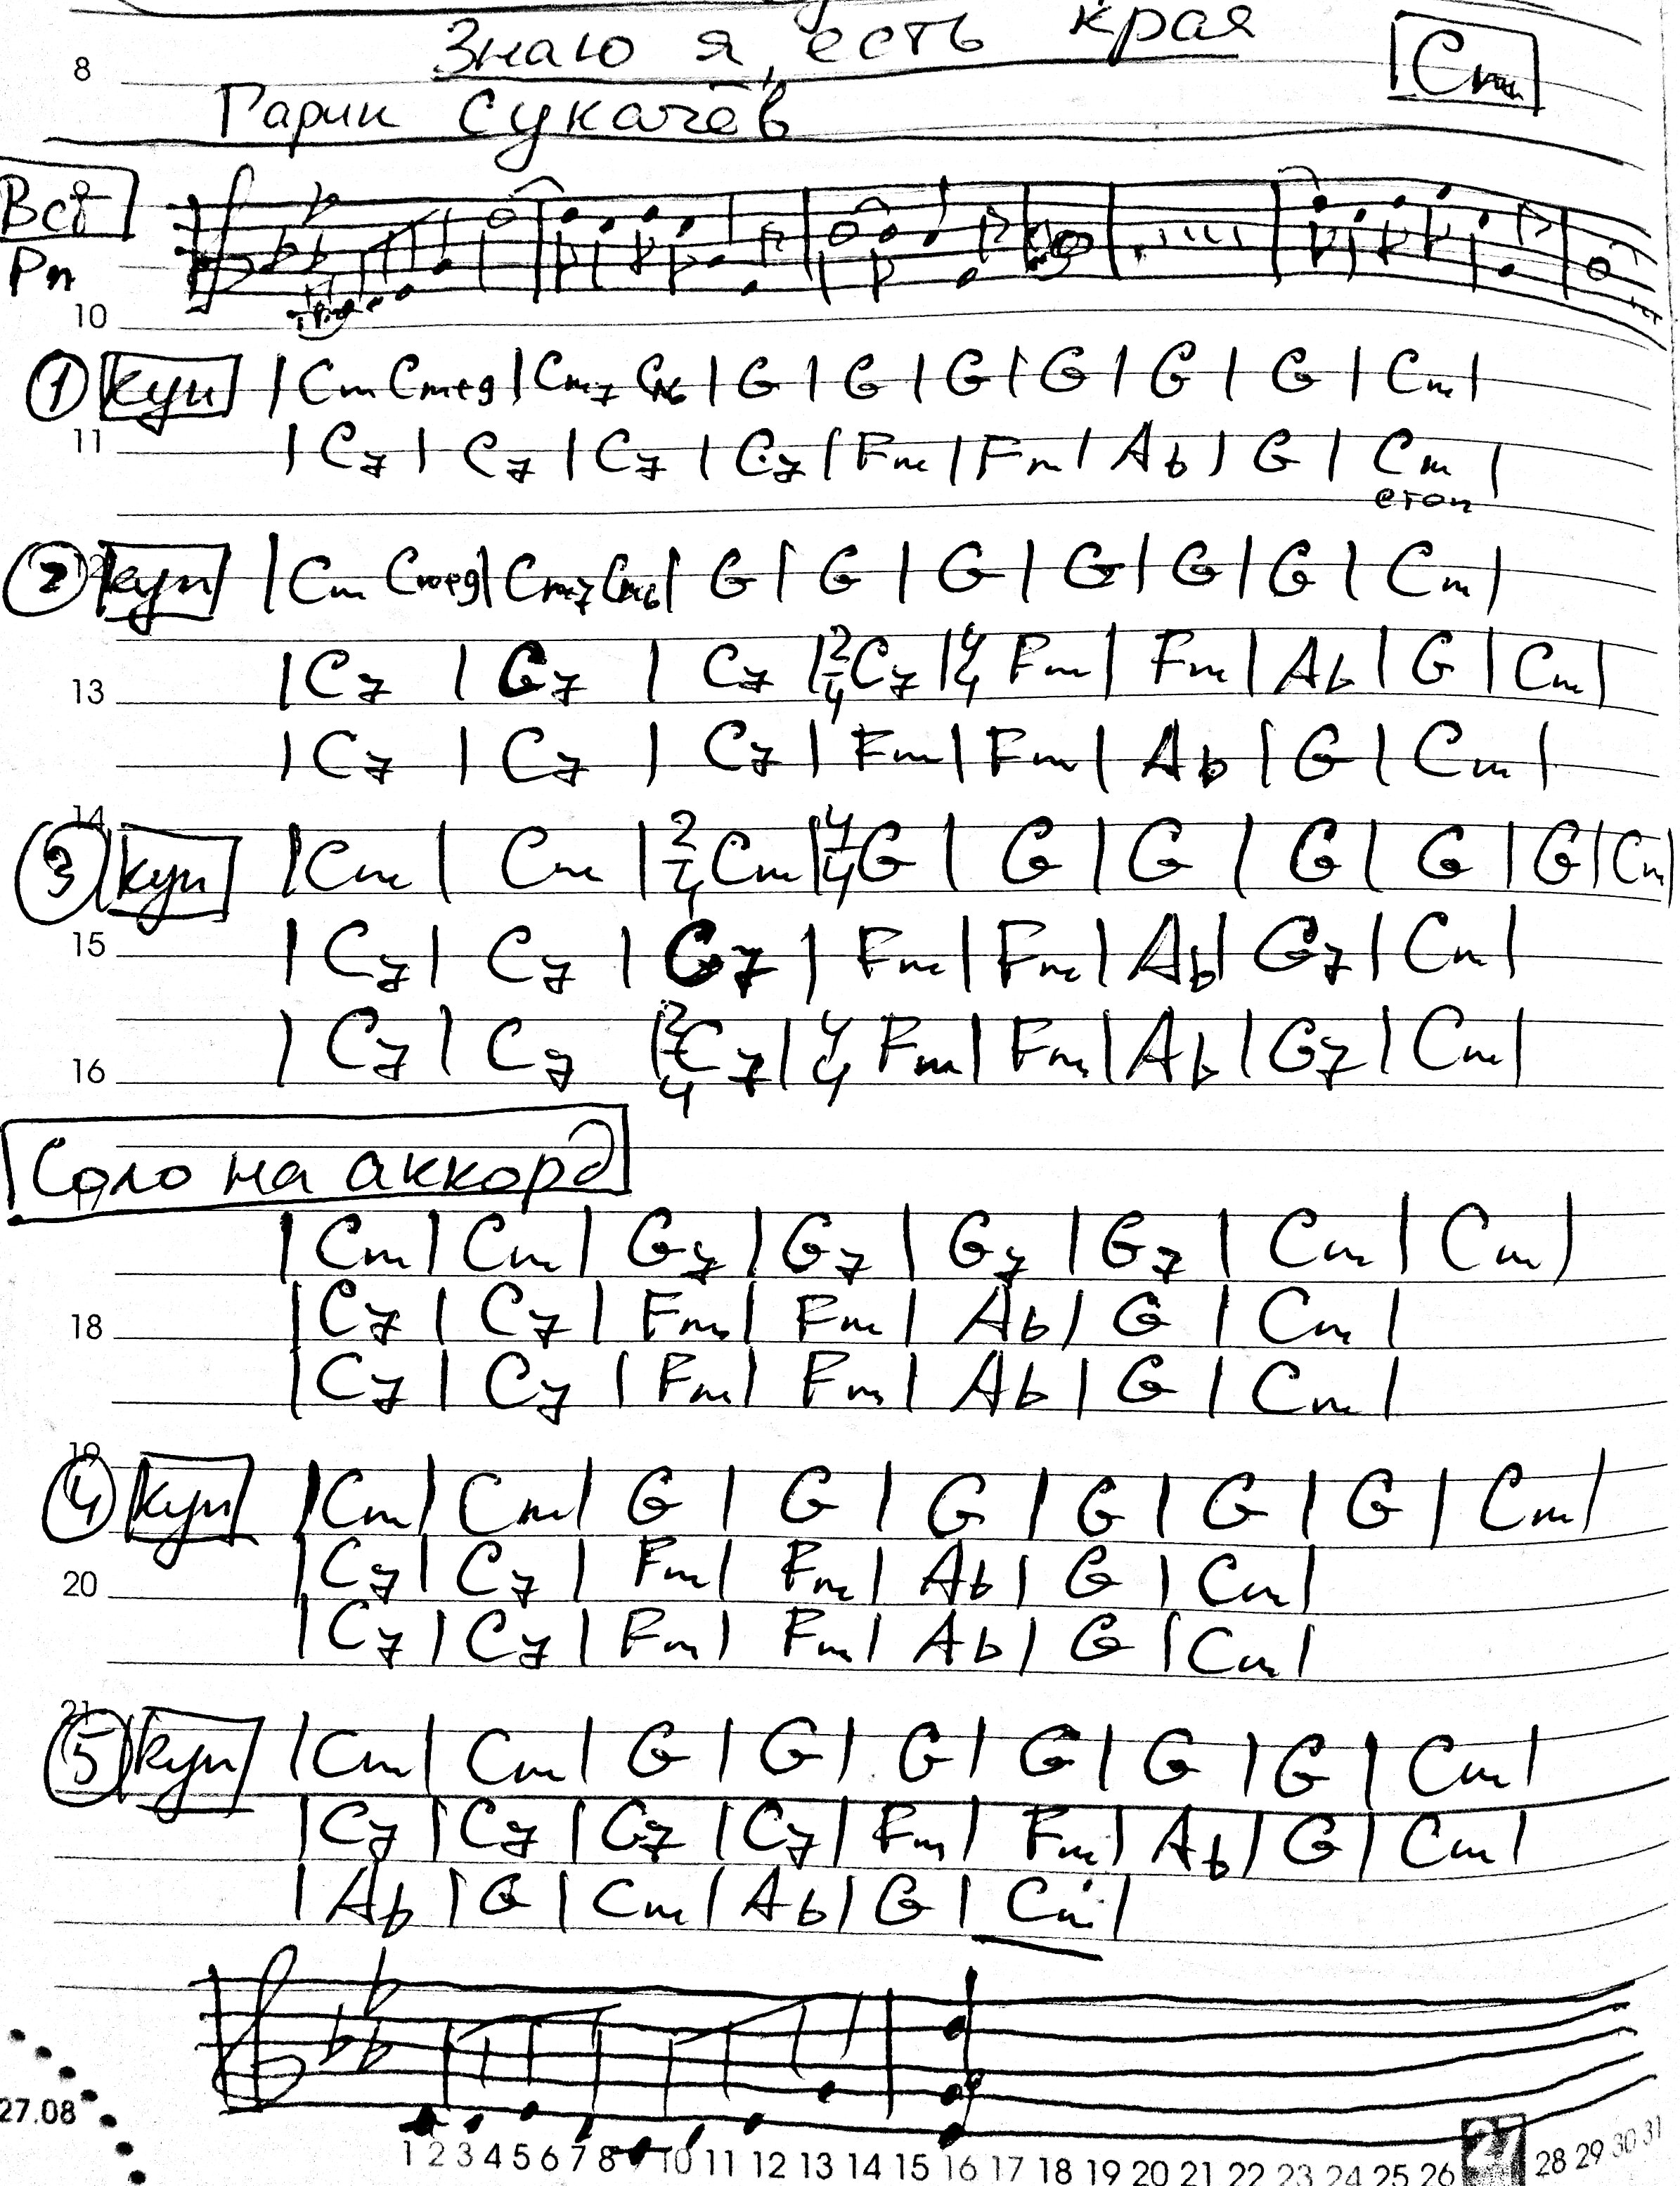 Знаю я, есть края
Cm
8
Гарик Сукачёв
Вст
Pn
10
① куп | Cm Cm+9 | Cm7 Cm6 | G | G | G | G | G | G | Cm |
11
| C7 | C7 | C7 | C7 | Fm | Fm | Ab | G | Cm |
стоп
② куп | Cm Cm+9 | Cm7 Cm6 | G | G | G | G | G | G | Cm |
13 | C7 | C7 | C7 | 2/4 C7 | 4/4 Fm | Fm | Ab | G | Cm |
| C7 | C7 | C7 | Fm | Fm | Ab | G | Cm |
14
③ куп | Cm | Cm | 2/4 Cm | 4/4 G | G | G | G | G | G | Cm |
15 | C7 | C7 | C7 | Fm | Fm | Ab | G7 | Cm |
16 | C7 | C7 | 2/4 C7 | 4/4 Fm | Fm | Ab | G7 | Cm |
Соло на аккорд
| Cm | Cm | G7 | G7 | G7 | G7 | Cm | Cm |
18 | C7 | C7 | Fm | Fm | Ab | G | Cm |
| C7 | C7 | Fm | Fm | Ab | G | Cm |
19
④ куп | Cm | Cm | G | G | G | G | G | G | Cm |
20 | C7 | C7 | Fm | Fm | Ab | G | Cm |
| C7 | C7 | Fm | Fm | Ab | G | Cm |
21
⑤ куп | Cm | Cm | G | G | G | G | G | G | Cm |
| C7 | C7 | C7 | C7 | Fm | Fm | Ab | G | Cm |
| Ab | G | Cm | Ab | G | Cm |
27.08
1 2 3 4 5 6 7 8 9 10 11 12 13 14 15 16 17 18 19 20 21 22 23 24 25 26 27 28 29 30 31